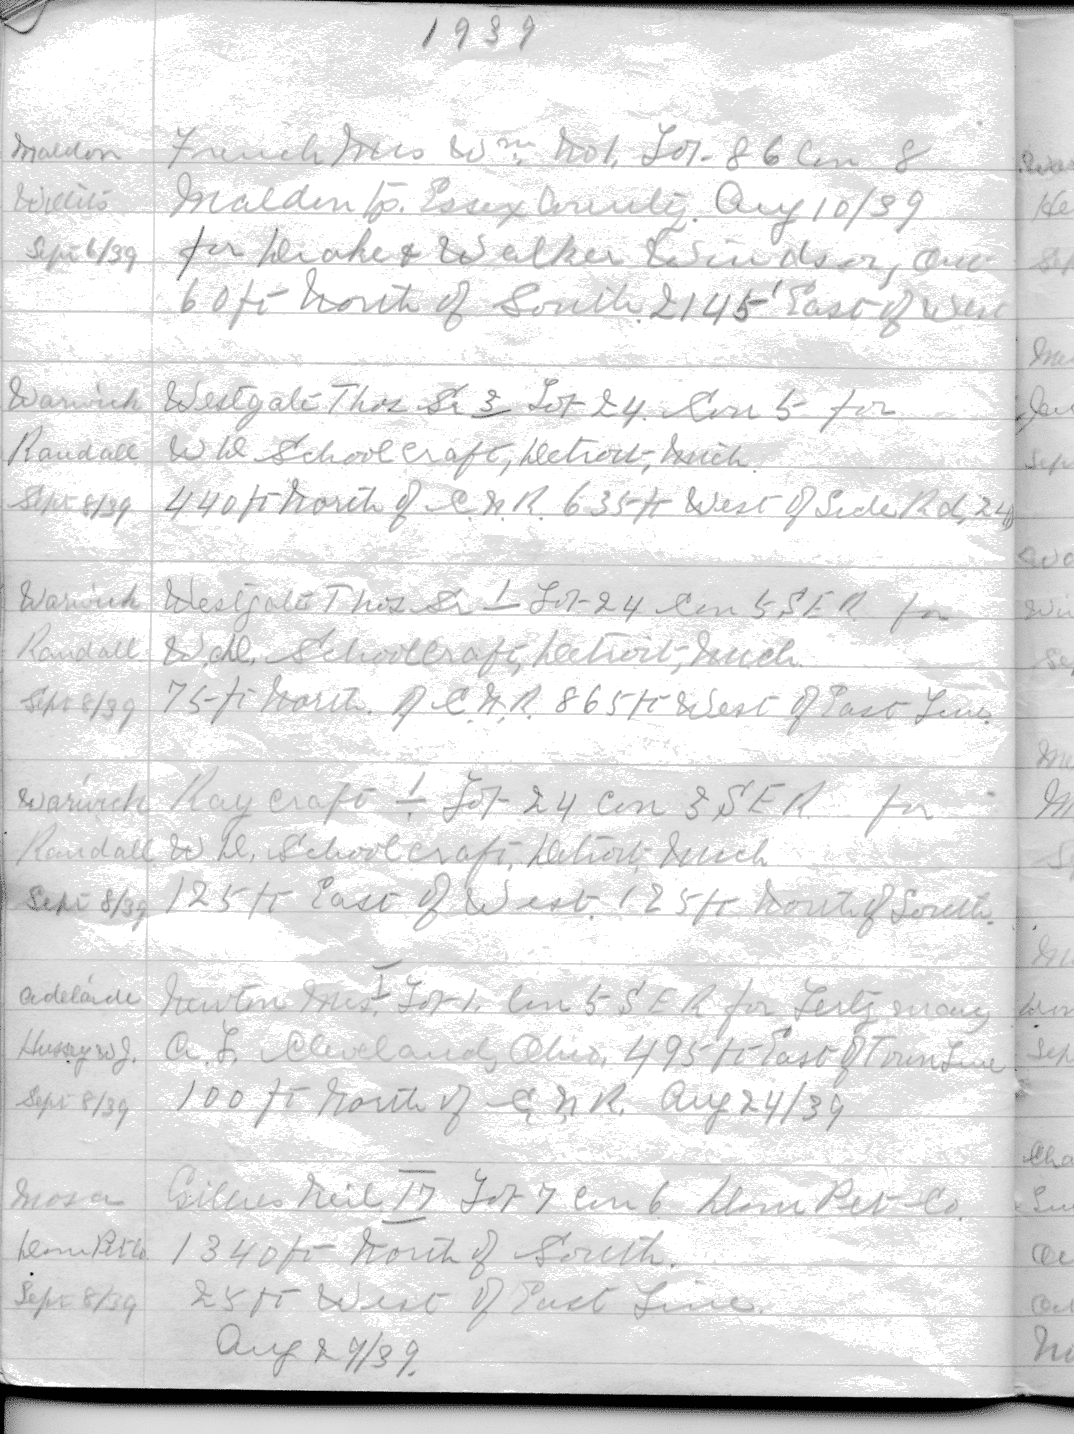 1939
Maldon French Mrs Wm. No 1. Lot 86 Con 8
Willits Maldon tp. Essex County. Aug 10/39
Sept 6/39 for Drake & Walker Windsor, Ont
60 ft North of South. 2145' East of West
Warwick Westgate Thos Sr 3 Lot 24. Con 5 for
Randall W D Schoolcraft, Detroit, Mich.
Sept 8/39 440 ft North of C.N.R. 635 ft West of Side Rd, 24
Warwick Westgate Thos Sr 1 Lot 24 Con 5 S E R for
Randall W.D. Schoolcraft, Detroit, Mich.
Sept 8/39 75 ft North. of C.N.R. 865 ft West of East Line.
Warwick Raycraft 1 Lot 24 Con 3 S E R for
Randall W D. Schoolcraft, Detroit, Mich
Sept 8/39 125 ft East of West. 125 ft North of South.
Adelaide Newton Mrs. 1 Lot 1. Con 5 S E R for
Hussey W J. A. L. Cleveland, Ohio, 495 ft East of Town Line
Sept 8/39 100 ft North of C.N.R. Aug 24/39
Mosa Gillies Neil 17 Lot 7 Con 6 Dom Pet Co.
Dom Pet Co 1340 ft North of South.
Sept 8/39 25 ft West of East Line.
Aug 29/39.